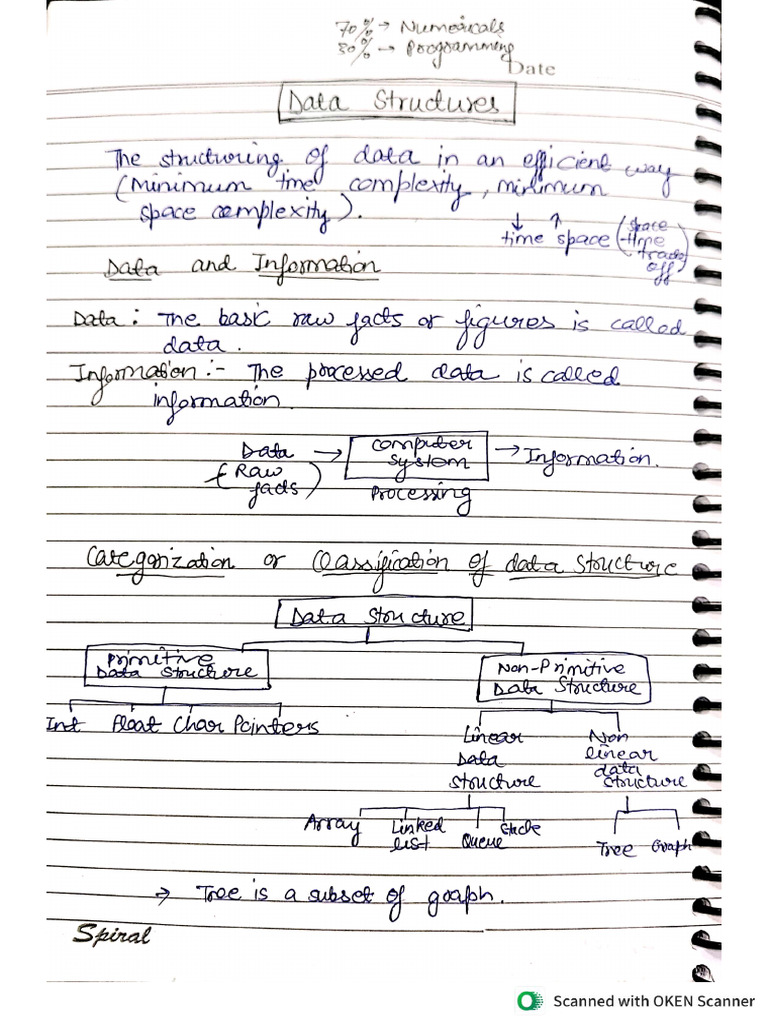 70% → Numericals
30% → Programming
Date
Data Structures
The structuring of data in an efficient way
(Minimum time complexity, minimum
space complexity).
↓ ↑
time space (space
time
trade
off)
Data and Information
Data : The basic raw facts or figures is called
data.
Information :- The processed data is called
information.
Data → computer system → Information.
(Raw facts)
Processing
Categorization or Classification of data structure
Data Structure
Primitive Data Structure
Non-Primitive Data Structure
Int Float Char Pointers
Linear Data Structure
Non linear data structure
Array Linked list Queue Stack
Tree Graph
→ Tree is a subset of graph.
Spiral
Scanned with OKEN Scanner